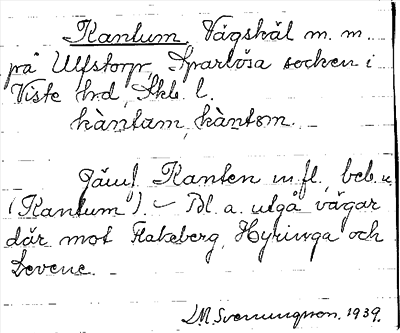 Kantum, Vägskäl m. m.
på Ulfstorp, Sparlösa socken i
Viste hrd, Skb. l.
kàntam, kàntəm.
Jämf. Kanten m. fl., beb. u.
(Kantum). – Bl. a. utgå vägar
där mot Flakeberg, Hyringa och
Levene.
M. Svenungsson. 1939.